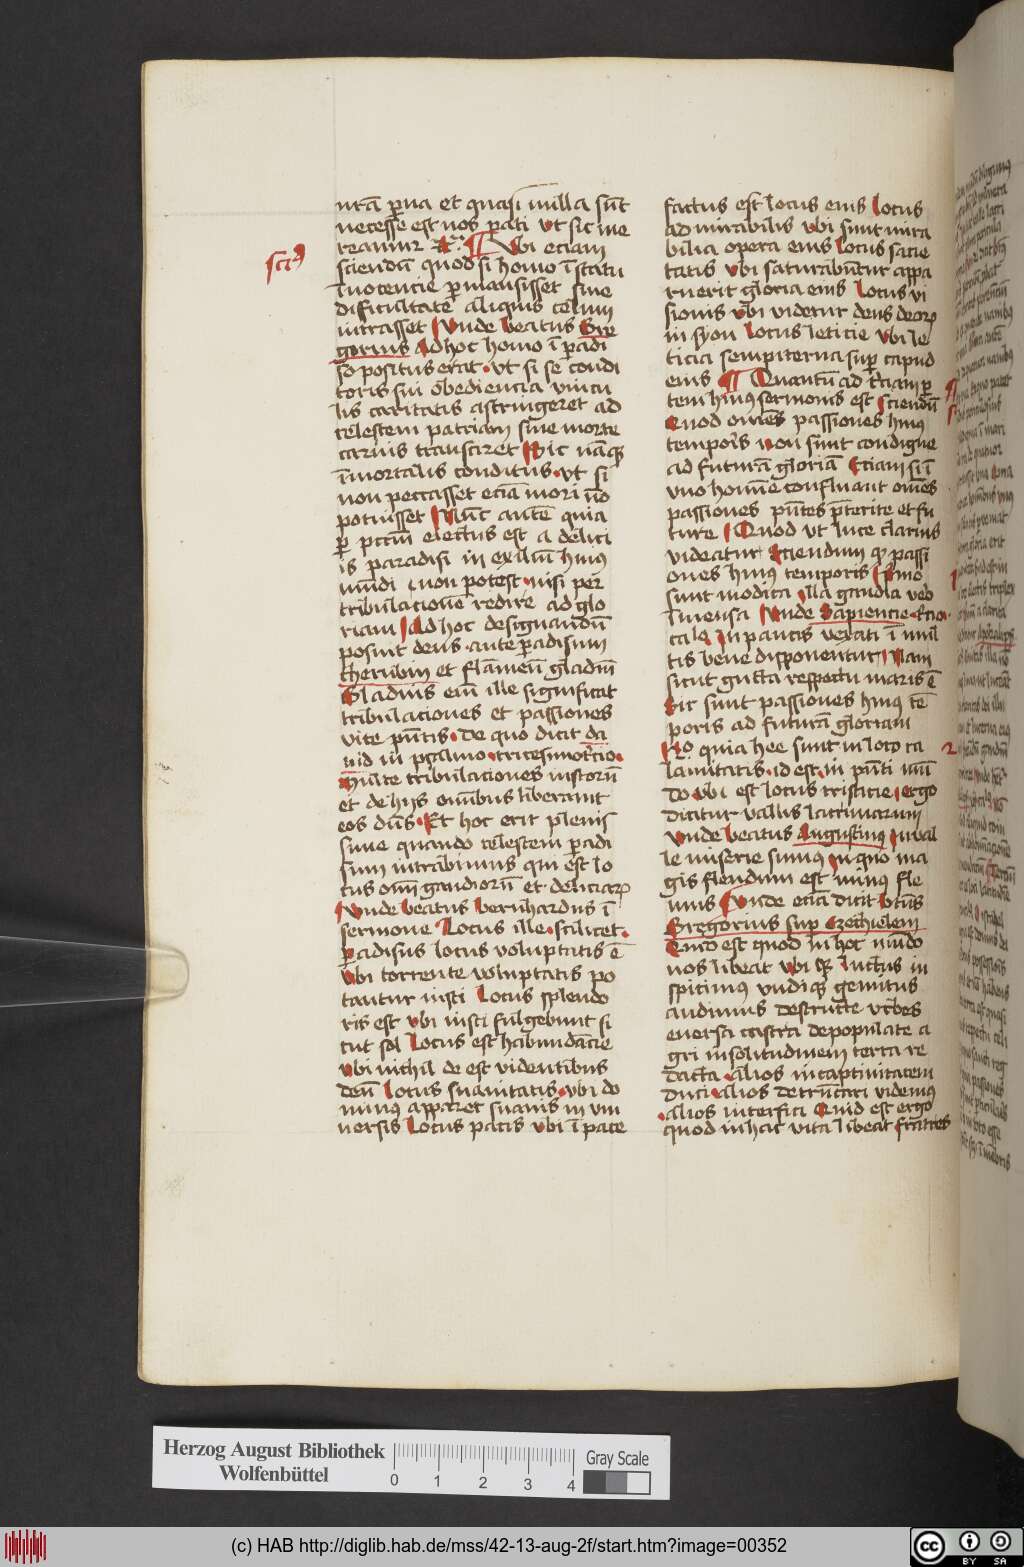 ntā pͣua et quasi nulla sūt
necesse est nos pati Vt sic me
reamur ⁊cͣ ¶ Vbi eciam
scid
sciendū quod si homo ī statu
īnocencie ꝑmansisset sine
dificultate aliquis celum
intrasset Vnde beatus Gre
gorius Ad hoc homo ī ꝑadi
so positus erat. Vt si se condi
toris sui obediencia vincu
lis caritatis astringeret ad
celestem patriam sine morte
carnis transiret Hic nāqꝫ
īmortalis conditus. Vt si
non peccasset eciā mori nō
potuisset Nūc autē quia
ꝑ pctm̄ eiectus est a delici
is paradisi in exiliū huiꝰ
mūdi non potest nisi per
tribulacionē redire ad glo
riam Ad hoc designandū
posuit deus ante ꝑadisum
cherubin et flāmeū gladiū
Gladius eī ille significat
tribulaciones et passiones
vite pn̄tis. De quo dicit da
uid in psalmo tricesimotercio.
Multe tribulaciones iustorū
et de hijs omībus liberauit
eos dn̄s. Et hoc erit plenis
sime quando celestem ꝑadi
sum intrabimus qui est lo
cus om̄i gaudiorū et deliciaꝝ
Vnde beatus bernhardus ī
sermone Locus ille. scilicet.
ꝑadisus locus voluptatis ē
Vbi torrente voluptatis po
tantur iusti Locus splendo
ris est vbi iusti fulgebunt si
cut sol Locus est habundācie
vbi nichil de est videntibus
deū Locus suauitatis. vbi do
minus apparet suauis in vni
uersis Locus pacis vbi ī pace
factus est locus eius Locus
admirabilis vbi sunt mira
bilia opera eius Locus sacie
tatis vbi saturabūtur appa
ruerit gloria eius Locus vi
sionis vbi videtur deus deoꝝ
in syon Locus leticie vbi le
ticia sempiterna suꝑ capud
eius ¶ Quantū ad tͨciam ꝑ
tem huiꝰ sermonis est Sciendū
Quod om̄es passiones huiꝰ
temporis non sunt condigne
ad futurā gloriā Eciam si ī
vno homīe confluant om̄es
passiones pn̄tes pͤterite et fu
ture Quod vt luce clarius
videatur Sciendum qͥ passi
ones huiꝰ temporis Primo
sunt modica illa gaudia vͦo
īmensa Vnde Sapiencie. tͨcio.
cale In paucis vexati ī mul
tis bene disponentur Nam
sicut gutta respectu maris ē
Sic sunt passiones huiꝰ tē
poris ad futurā gloriam
2o quia hee sunt in loco ca
lamitatis. id est. in pn̄ti mū
do vbi est locus tristicie ergo
dicitur vallis lacrimarum
Vnde beatus Augustinꝰ in val
le miserie sumus in quo ma
gis flendum est minꝰ fle
mus Vnde eciā dicit btūs
Gregorius suꝑ Ezechielem
Quid est quod in hoc mūdo
nos libeat vbi qꝫ luctus in
spicimꝰ vndiqꝫ gemitus
audimus destructe vrbes
euersa castra depopulate a
gri in solitudinem terra re
dacta. alios in captiuitatem
duci. alios detrūcari videmꝰ
.alios interfici Quid est ergo
quod in hac vita libeat fratres
Herzog August Bibliothek
Wolfenbüttel
0 1 2 3 4
Gray Scale
(c) HAB http://diglib.hab.de/mss/42-13-aug-2f/start.htm?image=00352
cc BY SA